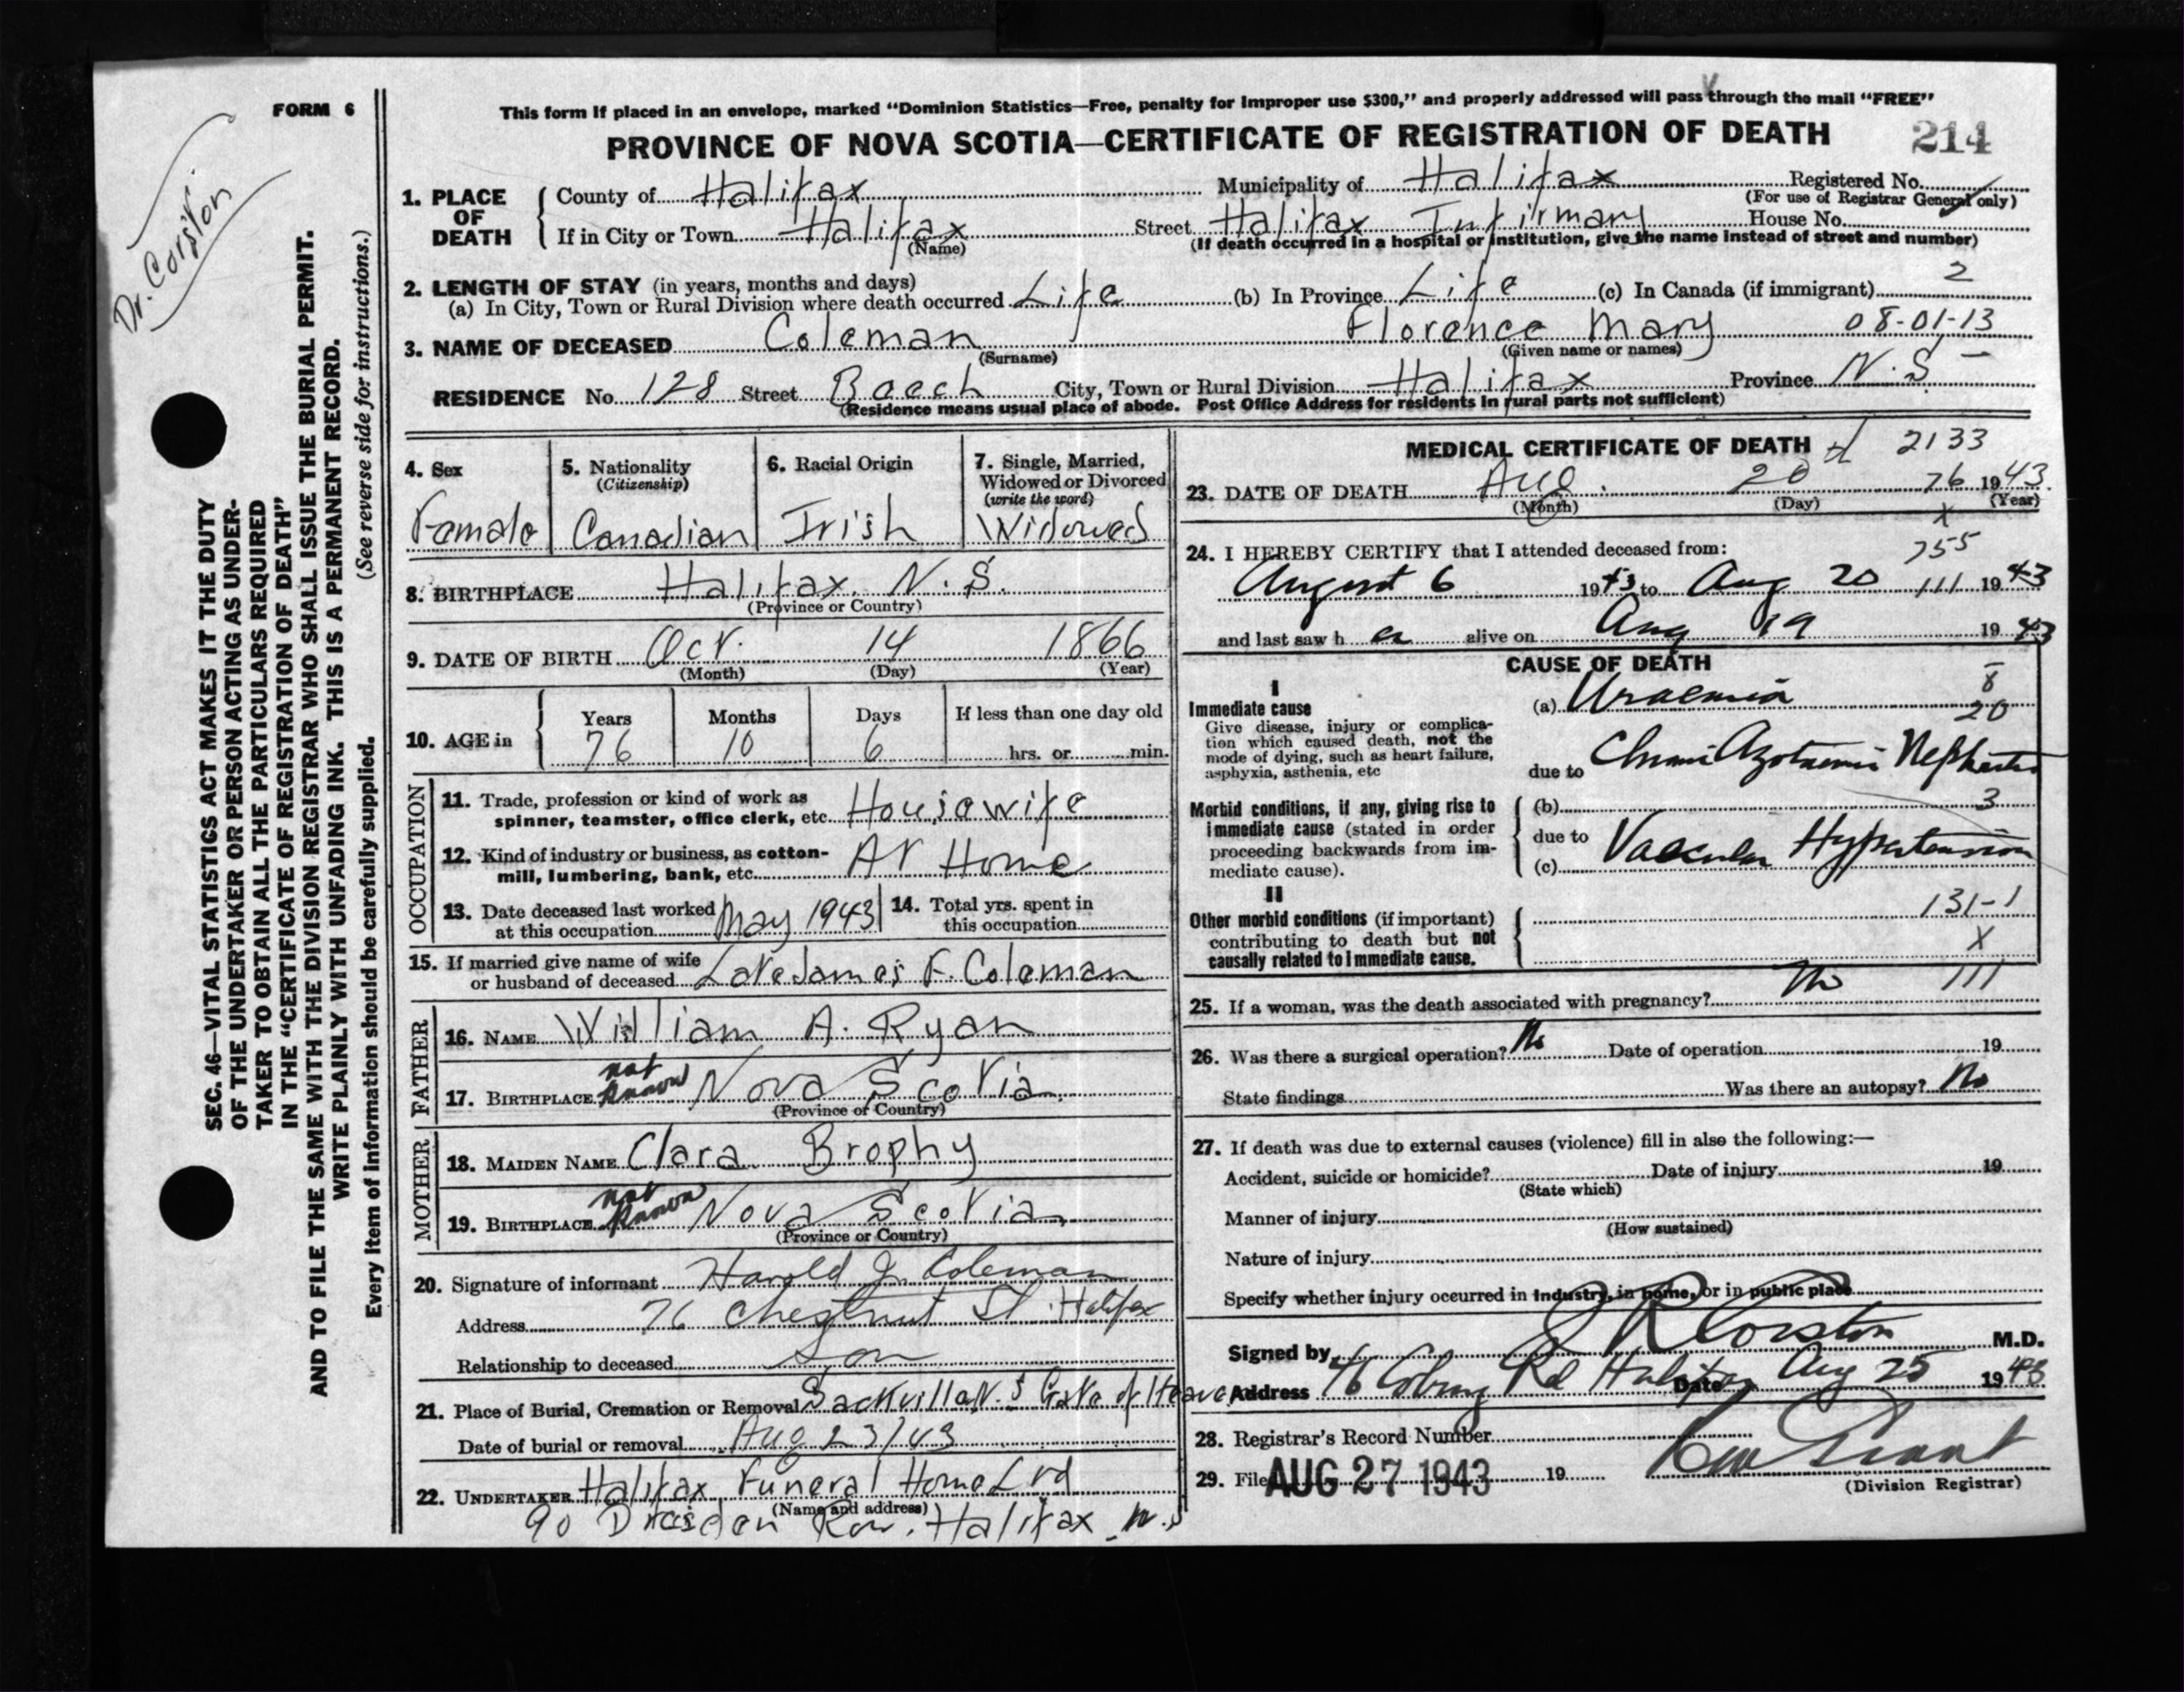 FORM 6
Dr. Corston
SEC. 46—VITAL STATISTICS ACT MAKES IT THE DUTY
OF THE UNDERTAKER OR PERSON ACTING AS UNDER-
TAKER TO OBTAIN ALL THE PARTICULARS REQUIRED
IN THE "CERTIFICATE OF REGISTRATION OF DEATH"
AND TO FILE THE SAME WITH THE DIVISION REGISTRAR WHO SHALL ISSUE THE BURIAL PERMIT.
WRITE PLAINLY WITH UNFADING INK. THIS IS A PERMANENT RECORD.
Every item of information should be carefully supplied. (See reverse side for instructions.)
This form if placed in an envelope, marked "Dominion Statistics—Free, penalty for improper use $300," and properly addressed will pass through the mail "FREE"
PROVINCE OF NOVA SCOTIA—CERTIFICATE OF REGISTRATION OF DEATH 214
1. PLACE OF DEATH County of Halifax Municipality of Halifax Registered No.
(For use of Registrar General only)
If in City or Town Halifax Street Halifax Infirmary House No.
(Name) (If death occurred in a hospital or institution, give the name instead of street and number)
2. LENGTH OF STAY (in years, months and days) 2
(a) In City, Town or Rural Division where death occurred Life (b) In Province Life (c) In Canada (if immigrant)
3. NAME OF DECEASED Coleman Florence Mary 08-01-13
(Surname) (Given name or names)
RESIDENCE No. 128 Street Beech City, Town or Rural Division Halifax Province N.S.
(Residence means usual place of abode. Post Office Address for residents in rural parts not sufficient)
4. Sex 5. Nationality (Citizenship) 6. Racial Origin 7. Single, Married, Widowed or Divorced (write the word)
Female Canadian Irish Widowed
8. BIRTHPLACE Halifax. N.S.
(Province or Country)
9. DATE OF BIRTH Oct. 14 1866
(Month) (Day) (Year)
10. AGE in Years Months Days If less than one day old
76 10 6 hrs. or min.
OCCUPATION
11. Trade, profession or kind of work as
spinner, teamster, office clerk, etc. Housewife
12. Kind of industry or business, as cotton-
mill, lumbering, bank, etc. At Home
13. Date deceased last worked at this occupation May 1943 14. Total yrs. spent in this occupation
15. If married give name of wife
or husband of deceased Late James F. Coleman
FATHER
16. NAME William A. Ryan
17. BIRTHPLACE not known Nova Scotia
(Province or Country)
MOTHER
18. MAIDEN NAME Clara Brophy
19. BIRTHPLACE not known Nova Scotia
(Province or Country)
20. Signature of informant Harold J. Coleman
Address 76 Chestnut St. Halifax
Relationship to deceased Son
21. Place of Burial, Cremation or Removal Sackville N.S Gate of Heaven
Date of burial or removal Aug 23/43
22. UNDERTAKER Halifax Funeral Home Ltd
(Name and address)
90 Dresden Row, Halifax N.S
MEDICAL CERTIFICATE OF DEATH 2133
23. DATE OF DEATH Aug. 20 76 1943
(Month) (Day) (Year)
X
24. I HEREBY CERTIFY that I attended deceased from: 755
August 6 1943 to Aug 20 111 1943
and last saw h er alive on Aug 19 1943
CAUSE OF DEATH
I
Immediate cause
Give disease, injury or complica-
tion which caused death, not the
mode of dying, such as heart failure,
asphyxia, asthenia, etc
(a) Uraemia 8
20
due to Chronic Azotaemic Nephritis
Morbid conditions, if any, giving rise to
immediate cause (stated in order
proceeding backwards from im-
mediate cause).
(b) 3
due to Vascular Hypertension
(c)
II
Other morbid conditions (if important)
contributing to death but not
causally related to immediate cause.
131-1
X
25. If a woman, was the death associated with pregnancy? No 111
26. Was there a surgical operation? No Date of operation 19
State findings Was there an autopsy? No
27. If death was due to external causes (violence) fill in also the following:—
Accident, suicide or homicide? Date of injury 19
(State which)
Manner of injury
(How sustained)
Nature of injury
Specify whether injury occurred in industry, in home, or in public place
Signed by J R Corston M.D.
Address 46 Coburg Rd Halifax Date Aug 25 1943
28. Registrar's Record Number
29. Filed AUG 27 1943 19
(Division Registrar)